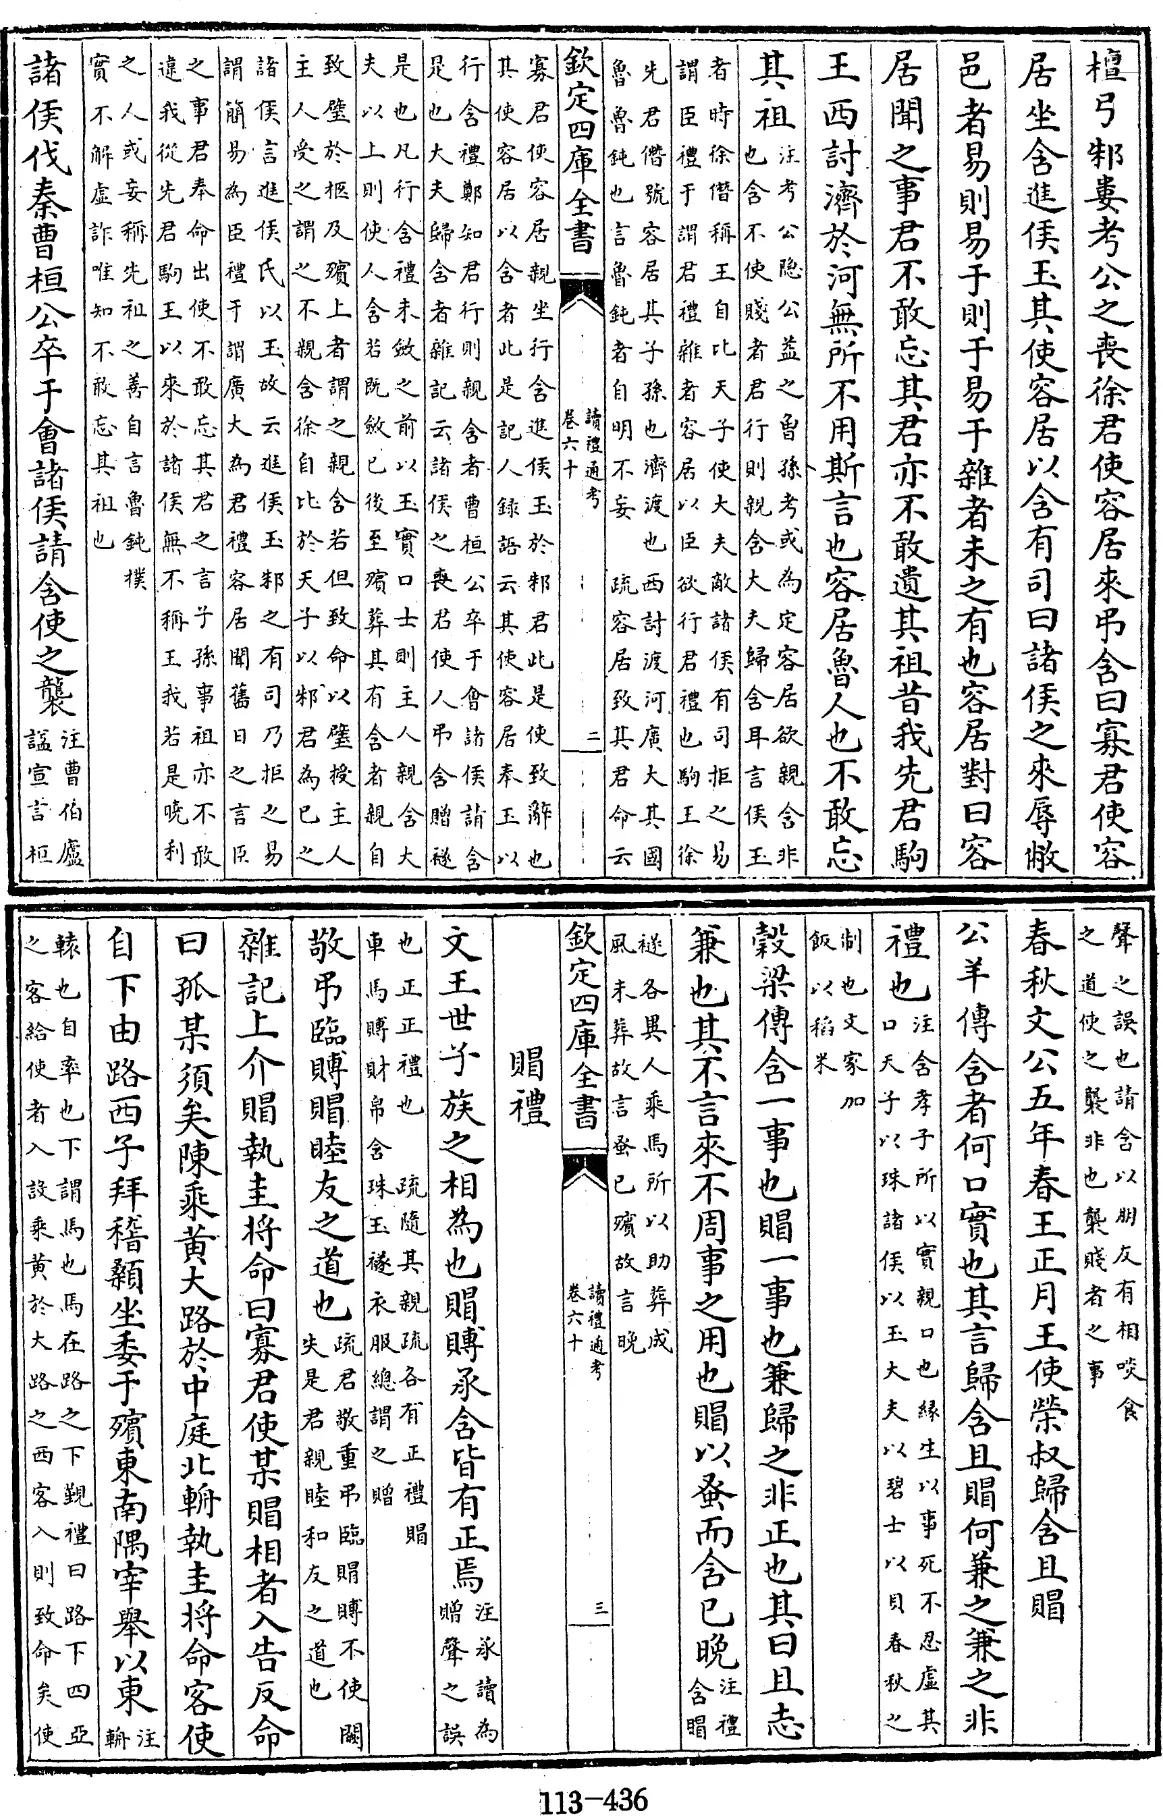 檀弓邾婁考公之喪徐君使容居來弔含曰寡君使容
居坐含進侯玉其使容居以含有司曰諸侯之來辱敝
邑者易則易于則于易于雜者未之有也容居對曰容
居聞之事君不敢忘其君亦不敢遺其祖昔我先君駒
王西討濟於河無所不用斯言也容居魯人也不敢忘
其祖
注考公隐公益之曾孫考或為定容居欲親含非
也含不使賤者君行則親含大夫歸含耳言侯玉
者時徐僭稱王自比天子使大夫敵諸侯有司拒之易
謂臣禮于謂君禮雜者容居以臣欲行君禮也駒王徐
先君僭號容居其子孫也濟渡也西討渡河廣大其國
魯魯鈍也言魯鈍者自明不妄 疏容居致其君命云
欽定四庫全書
讀禮通考
卷六十
二
寡君使容居親坐行含進侯玉於邾君此是使致辭也
其使容居以含者此是記人録語云其使容居奉玉以
行含禮鄭知君行則親含者曹桓公卒于會諸侯請含
是也大夫歸含者雜記云諸侯之喪君使人弔含贈襚
是也凡行含禮未斂之前以玉實口士則主人親含大
夫以上則使人含若既斂已後至殯葬其有含者親自
致璧於柩及殯上者謂之親含若但致命以璧授主人
主人受之謂之不親含徐自比於天子以邾君為己之
諸侯言進侯氏以玉故云進侯玉邾之有司乃拒之易
謂簡易為臣禮于謂廣大為君禮容居聞舊日之言臣
之事君奉命出使不敢忘其君之言子孫事祖亦不敢
違我從先君駒王以來於諸侯無不稱王我若是曉利
之人或妄稱先祖之善自言魯鈍樸
實不解虛詐唯知不敢忘其祖也
諸侯伐秦曹桓公卒于會諸侯請含使之襲
注曹伯廬
諡宣言桓
聲之誤也請含以朋友有相啖食
之道使之襲非也襲賤者之事
春秋文公五年春王正月王使榮叔歸含且賵
公羊傳含者何口實也其言歸含且賵何兼之兼之非
禮也
注含孝子所以實親口也緣生以事死不忍虛其
口天子以珠諸侯以玉大夫以碧士以貝春秋之
制也文家加
飯以稻米
穀梁傳含一事也賵一事也兼歸之非正也其曰且志
兼也其不言來不周事之用也賵以蚤而含已晚
注禮
含賵
襚各異人乘馬所以助葬成
風未葬故言蚤已殯故言晚
欽定四庫全書
讀禮通考
卷六十
三
賵禮
文王世子族之相為也賵賻承含皆有正焉
注承讀為
贈聲之誤
也正正禮也 疏隨其親疏各有正禮賵
車馬賻財帛含珠玉襚衣服總謂之贈
敬弔臨賻賵睦友之道也
疏君敬重弔臨賵賻不使闕
失是君親睦和友之道也
雜記上介賵執圭將命曰寡君使某賵相者入告反命
曰孤某須矣陳乘黄大路於中庭北輈執圭將命客使
自下由路西子拜稽顙坐委于殯東南隅宰舉以東
注
輈
轅也自率也下謂馬也馬在路之下覲禮曰路下四亞
之客給使者入設乘黄於大路之西客入則致命矣使
113-436